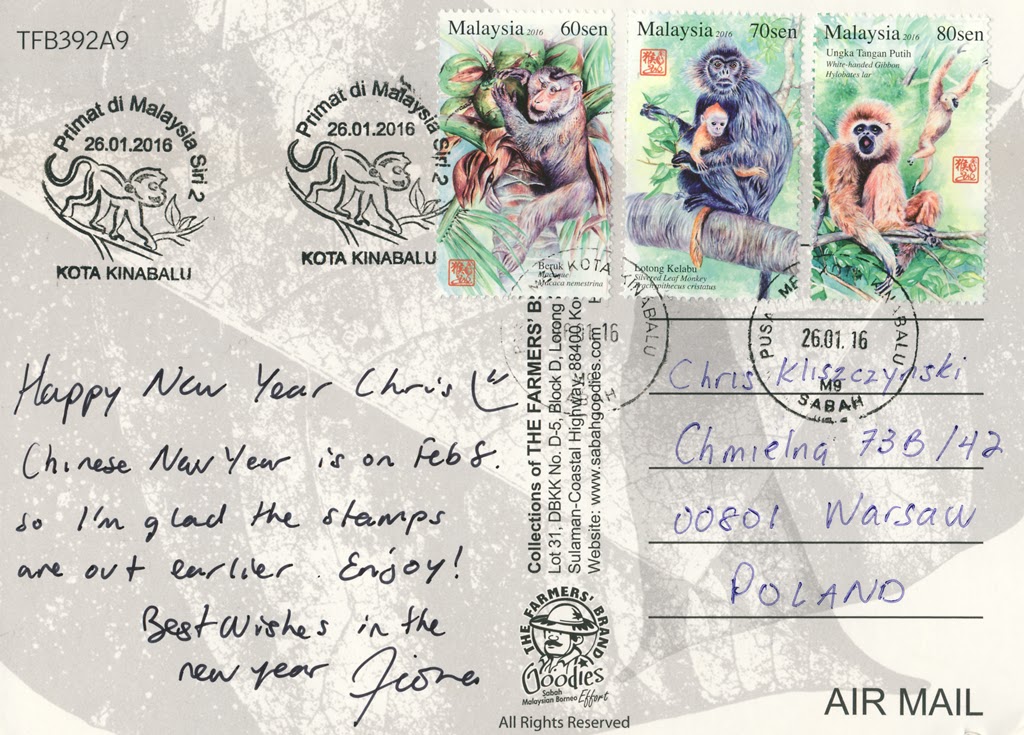 TFB392A9
Primat di Malaysia Siri 2
26.01.2016
KOTA KINABALU
Primat di Malaysia Siri 2
26.01.2016
KOTA KINABALU
Malaysia 2016 60sen
Beruk
Macaque
Macaca nemestrina
Malaysia 2016 70sen
Lotong Kelabu
Silvered Leaf Monkey
Trachypithecus cristatus
Malaysia 2016 80sen
Ungka Tangan Putih
White-handed Gibbon
Hylobates lar
KOTA KINABALU
01 16
KINABALU
26.01.16
M9
SABAH
Happy New Year Chris
Chinese New Year is on Feb 8.
so I'm glad the stamps
are out earlier. Enjoy!
Best Wishes in the
new year Fiona
Collections of THE FARMERS' B
Lot 31, DBKK No. D-5, Block D, Lorong
Sulaman-Coastal Highway, 88400 Ko
Website: www.sabahgoodies.com
THE FARMERS' BRAND
Goodies
Sabah
Malaysian Borneo Effort
All Rights Reserved
Chris Kliszczynski
Chmielna 73B/42
00801 Warsaw
POLAND
AIR MAIL